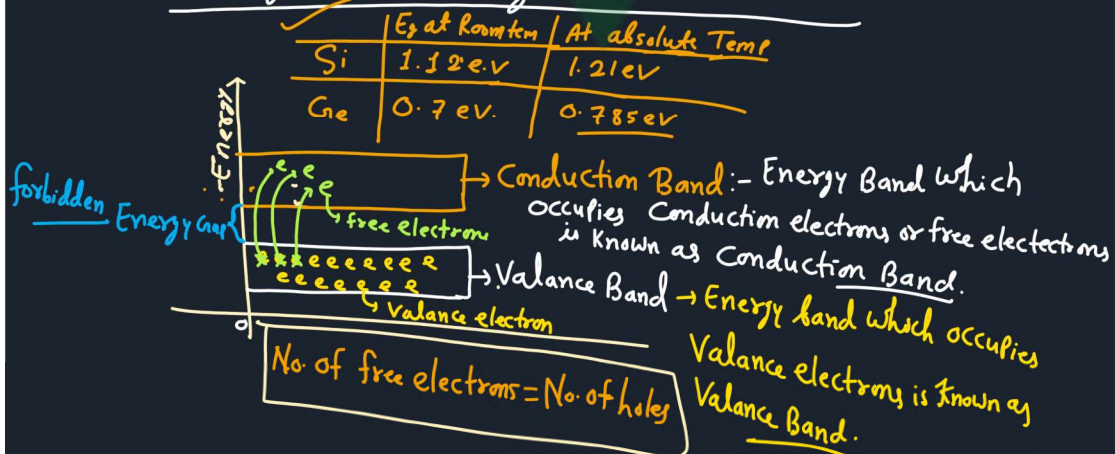 Eg at Room tem | At absolute Temp
Si | 1.12 e.v | 1.21ev
Ge | 0.7 ev. | 0.785ev
Energy
forbidden
Energy Gap
e e
e
free electrons
→ Conduction Band:- Energy Band which
occupies Conduction electrons or free electectrons
is known as Conduction Band.
e e e e e e e
e e e e e e e
Valance electron
→ Valance Band → Energy band which occupies
Valance electrons is known as
Valance Band.
0
No. of free electrons = No. of holes